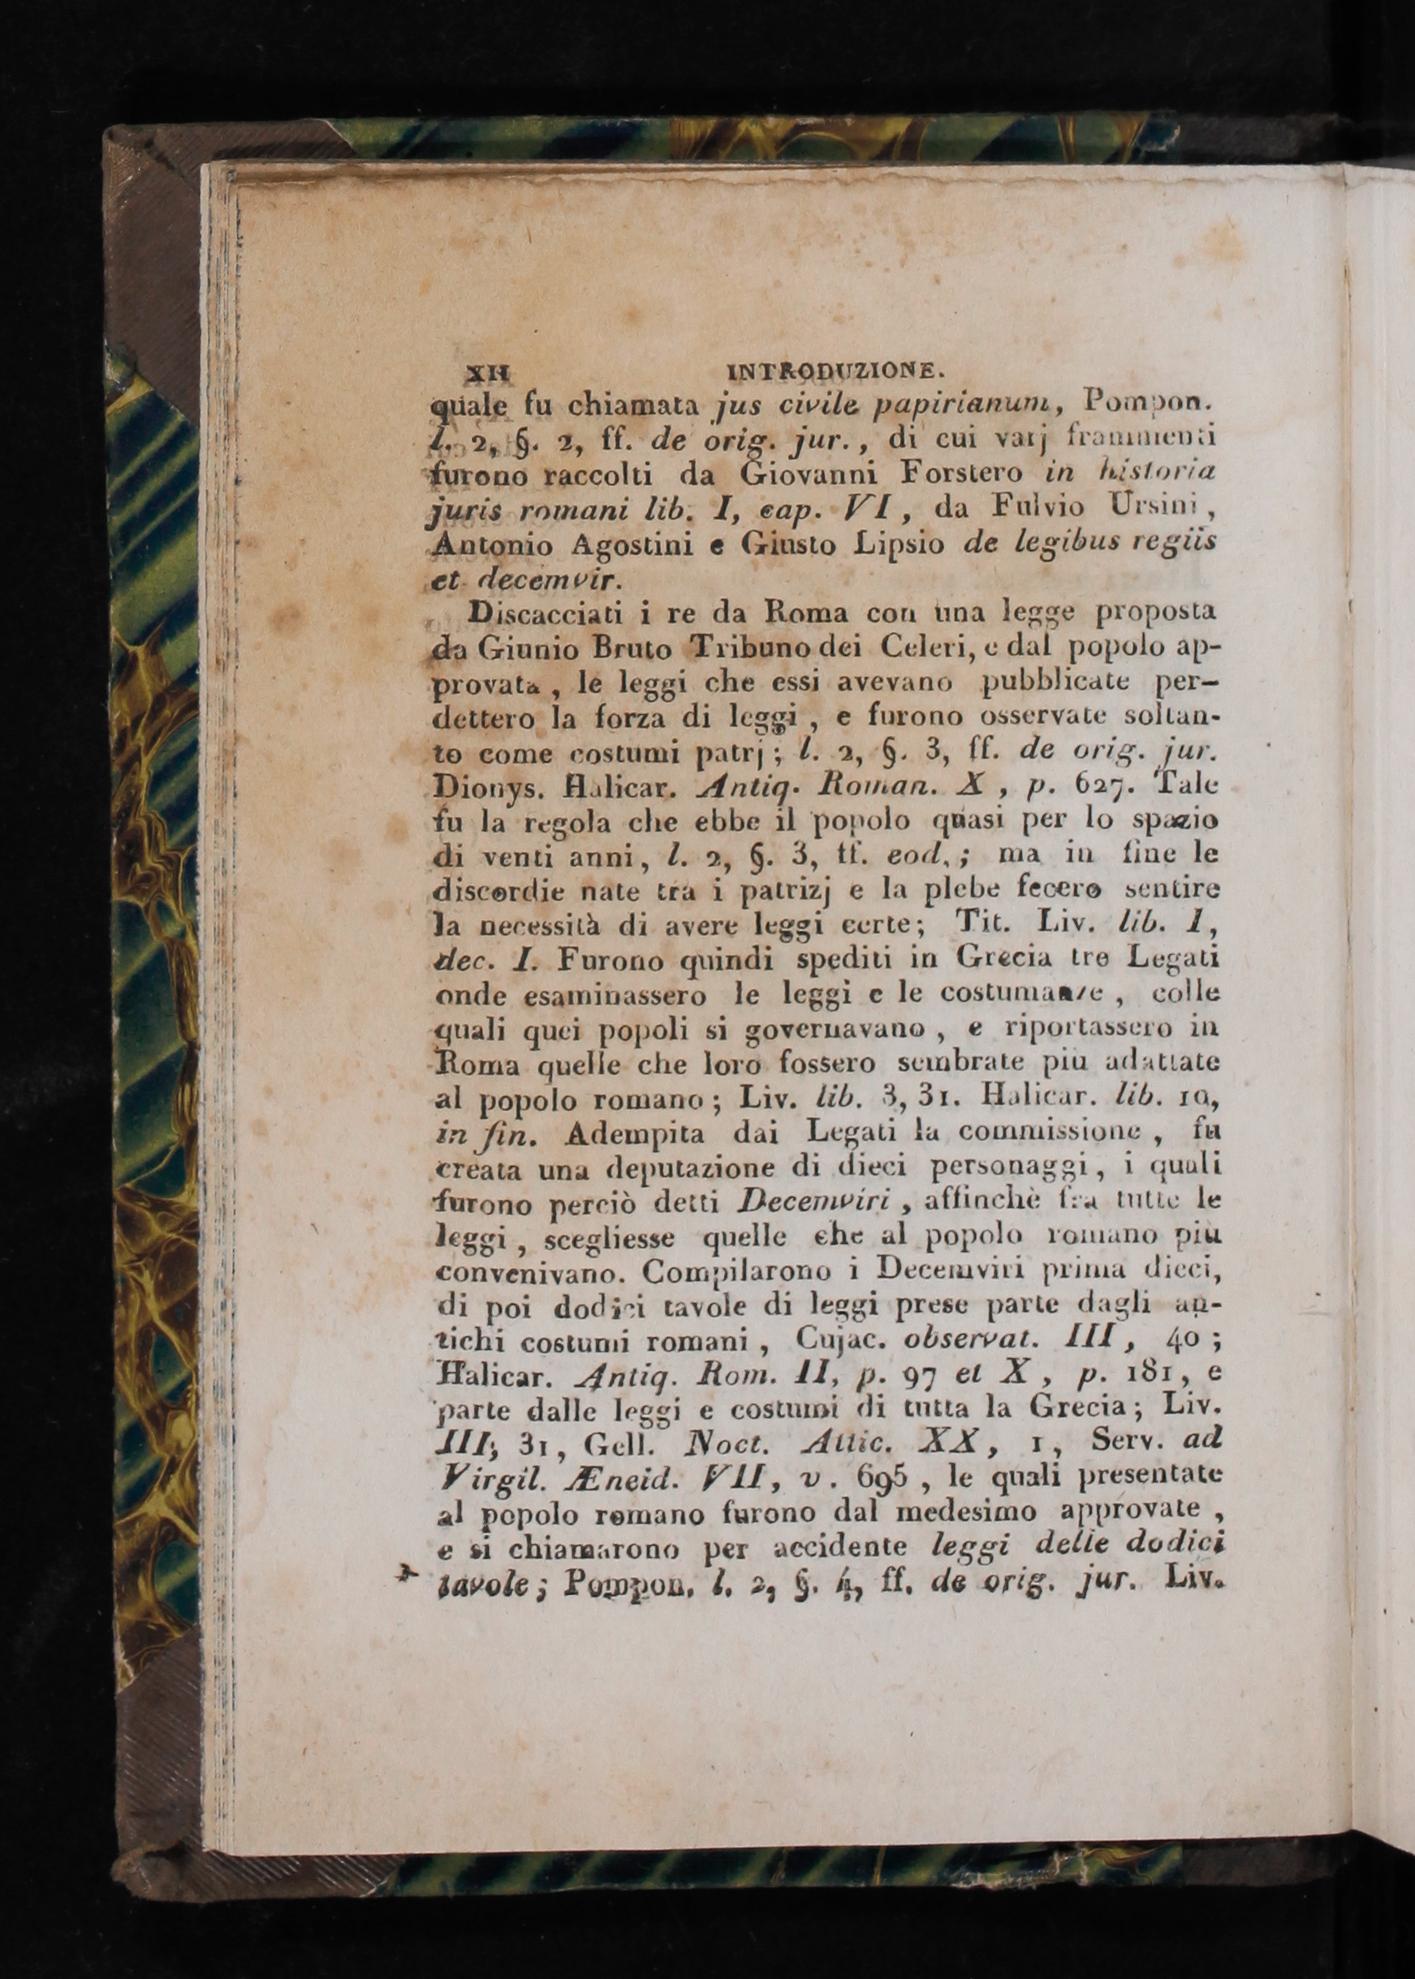 XII INTRODUZIONE.
quale fu chiamata jus civile papirianum, Pompon.
l. 2, §. 2, ff. de orig. jur., di cui varj frammenti
furono raccolti da Giovanni Forstero in historia
juris romani lib. I, cap. VI, da Fulvio Ursini,
Antonio Agostini e Giusto Lipsio de legibus regiis
et decemvir.
Discacciati i re da Roma con una legge proposta
da Giunio Bruto Tribuno dei Celeri, e dal popolo ap-
provata, le leggi che essi avevano pubblicate per-
dettero la forza di leggi, e furono osservate soltan-
to come costumi patrj; l. 2, §. 3, ff. de orig. jur.
Dionys. Halicar. Antiq. Roman. X, p. 627. Tale
fu la regola che ebbe il popolo quasi per lo spazio
di venti anni, l. 2, §. 3, ff. eod.; ma in fine le
discordie nate tra i patrizj e la plebe fecero sentire
la necessità di avere leggi certe; Tit. Liv. lib. I,
dec. I. Furono quindi spediti in Grecia tre Legati
onde esaminassero le leggi e le costumanze, colle
quali quei popoli si governavano, e riportassero in
Roma quelle che loro fossero sembrate più adattate
al popolo romano; Liv. lib. 3, 31. Halicar. lib. 10,
in fin. Adempita dai Legati la commissione, fu
creata una deputazione di dieci personaggi, i quali
furono perciò detti Decemviri, affinchè fra tutte le
leggi, scegliesse quelle che al popolo romano più
convenivano. Compilarono i Decemviri prima dieci,
di poi dodici tavole di leggi prese parte dagli an-
tichi costumi romani, Cujac. observat. III, 40;
Halicar. Antiq. Rom. II, p. 97 et X, p. 181, e
parte dalle leggi e costumi di tutta la Grecia; Liv.
III, 31, Gell. Noct. Attic. XX, 1, Serv. ad
Virgil. Æneid. VII, v. 695, le quali presentate
al popolo romano furono dal medesimo approvate,
e si chiamarono per accidente leggi delle dodici
tavole; Pompon. l. 2, §. 4, ff. de orig. jur. Liv.